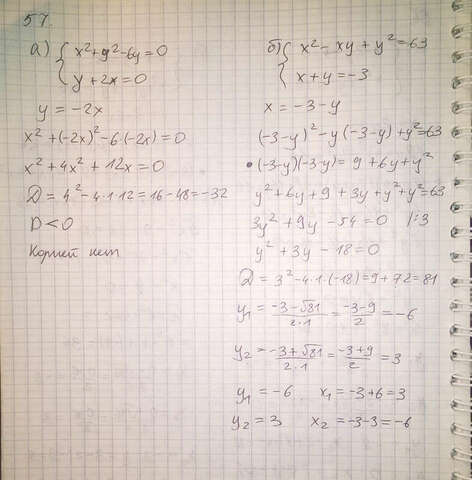 57.
а) { x² + y² - 6y = 0
{ y + 2x = 0
y = -2x
x² + (-2x)² - 6(-2x) = 0
x² + 4x² + 12x = 0
D = 4² - 4·1·12 = 16 - 48 = -32
D < 0
Корней нет
б) { x² - xy + y² = 63
{ x + y = -3
x = -3 - y
(-3-y)² - y(-3-y) + y² = 63
• (-3-y)(-3-y) = 9 + 6y + y²
y² + 6y + 9 + 3y + y² + y² = 63
3y² + 9y - 54 = 0 /:3
y² + 3y - 18 = 0
D = 3² - 4·1·(-18) = 9 + 72 = 81
y₁ = (-3 - √81)/(2·1) = (-3-9)/2 = -6
y₂ = (-3 + √81)/(2·1) = (-3+9)/2 = 3
y₁ = -6 x₁ = -3 + 6 = 3
y₂ = 3 x₂ = -3 - 3 = -6